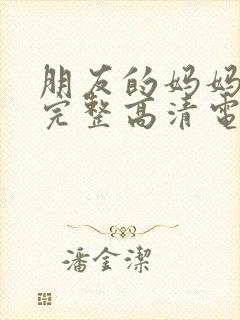 朋友的妈妈
完整高清電
潘金潔